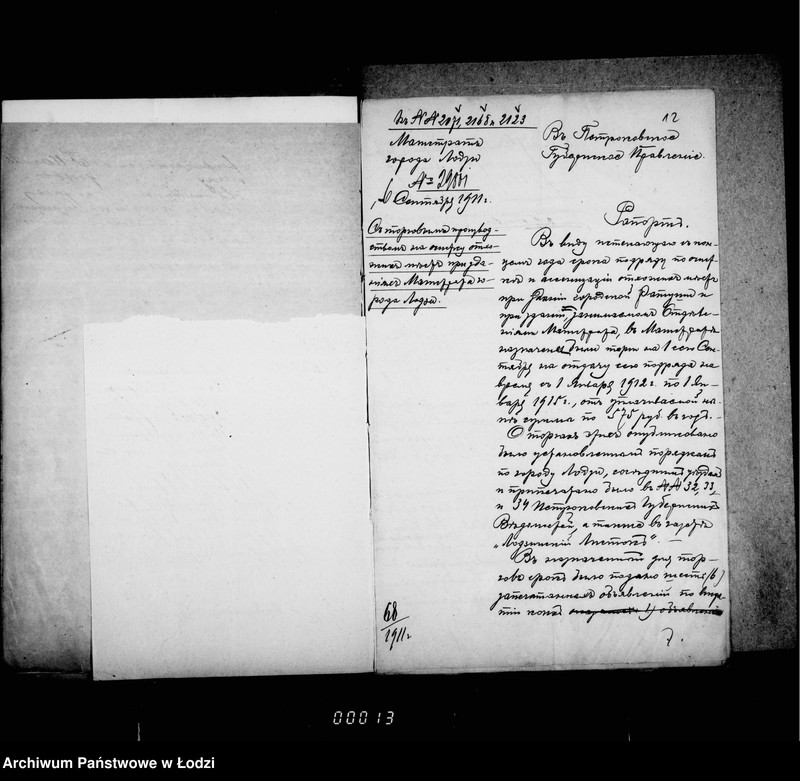 12
Къ №№ 2071, 2165 и 2123
Магистратъ
города Лодзи
№
Сентября 1911 г.
Съ торговымъ производ-
ствомъ на очистку отхо-
жихъ мѣстъ при зда-
ніяхъ Магистрата го-
рода Лодзи.
Въ Петроковское
Губернское Правленіе.
Рапортъ.
Въ виду истекающаго съ кон-
цомъ года срока подряда по очист-
кѣ и ассенизаціи отхожихъ мѣстъ
при зданіи городской Ратуши и
при зданіи, занимаемомъ Отдѣле-
ніями Магистрата, въ Магистратѣ
назначены были торги на 1 сего Сен-
тября на отдачу сего подряда на
время съ 1 Января 1912 г. по 1 Ян-
варя 1915 г., отъ уплачиваемой ны-
нѣ суммы по 575 руб. въ годъ.
О торгахъ этихъ опубликовано
было установленнымъ порядкомъ
по городу Лодзи,
и припечатано было въ №№ 32, 33,
и 34 Петроковскихъ Губернскихъ
Вѣдомостей, а также въ газетѣ
„Лодзинскій Листокъ".
Въ назначенный для тор-
говъ срокъ было подано шесть (6)
запечатанныхъ объявленій по вскры-
тіи коихъ
68
1911 г.
7.
00013
Archiwum Państwowe w Łodzi